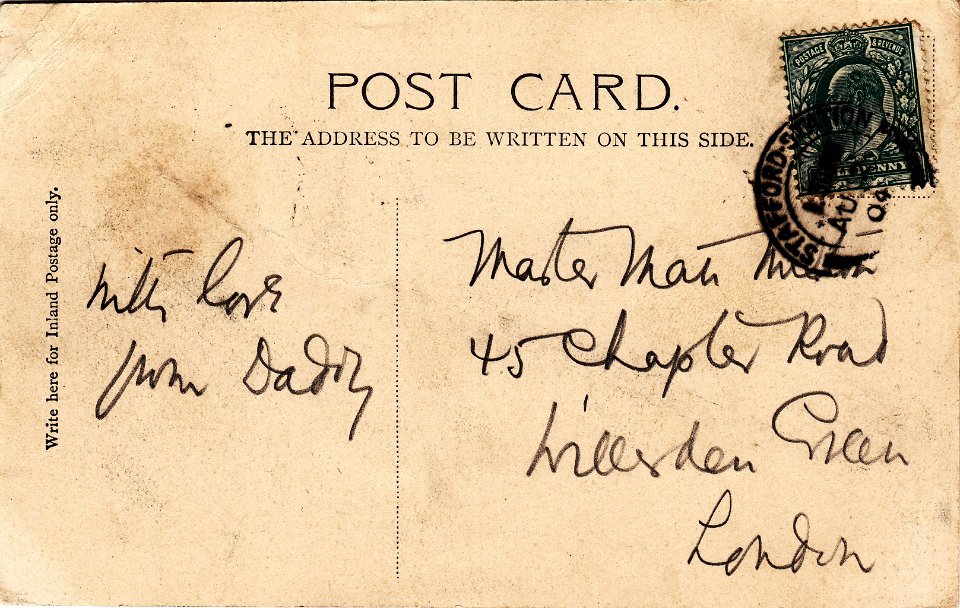 POST CARD.
THE ADDRESS TO BE WRITTEN ON THIS SIDE.
POSTAGE & REVENUE
PENNY
STAFFORD STATION
AU
04
Write here for Inland Postage only.
With love
from Daddy
Master Matt
45 Chapter Road
Willesden Green
London